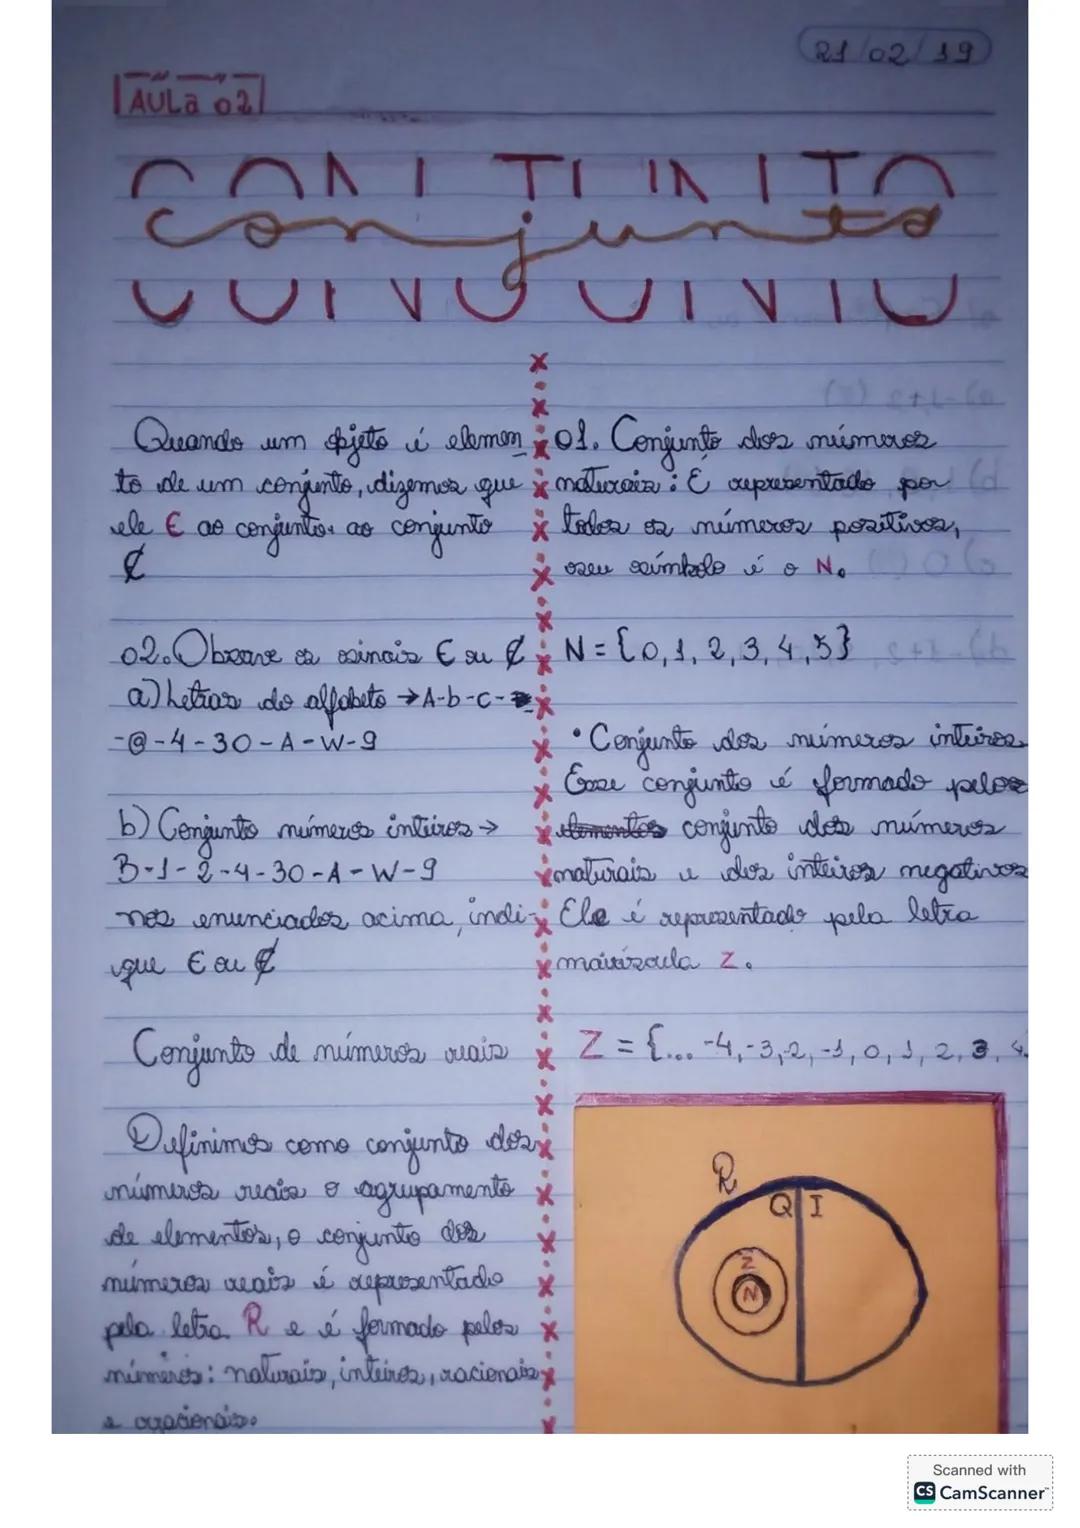 21/02/19
AULa 02
CONJUNTO
conjunto
Quando um objeto é elemen
to de um conjunto, dizemos que
ele ∈ ao conjunto. ao conjunto
∉
02. Observe os sinais ∈ ou ∉
a) Letras do alfabeto → A-b-c-
-@-4-30-A-W-9
b) Conjunto números inteiros →
B-1-2-4-30-A-W-9
nos enunciados acima, indi-
que ∈ ou ∉
Conjunto de números reais
Definimos como conjunto dos
números reais o agrupamento
de elementos, o conjunto dos
números reais é representado
pela letra R e é formado pelos
números: naturais, inteiros, racionais
e
01. Conjunto dos números
naturais: É representado por
todos os números positivos,
seu símbolo é o N.
N = {0, 1, 2, 3, 4, 5}
• Conjunto dos números inteiros
Esse conjunto é formado pelos
elementos conjunto dos números
naturais e dos inteiros negativos
Ele é representado pela letra
maiúscula Z.
Z = {... -4, -3, -2, -1, 0, 1, 2, 3, 4
R
Q I
Z
N
Scanned with
CS CamScanner